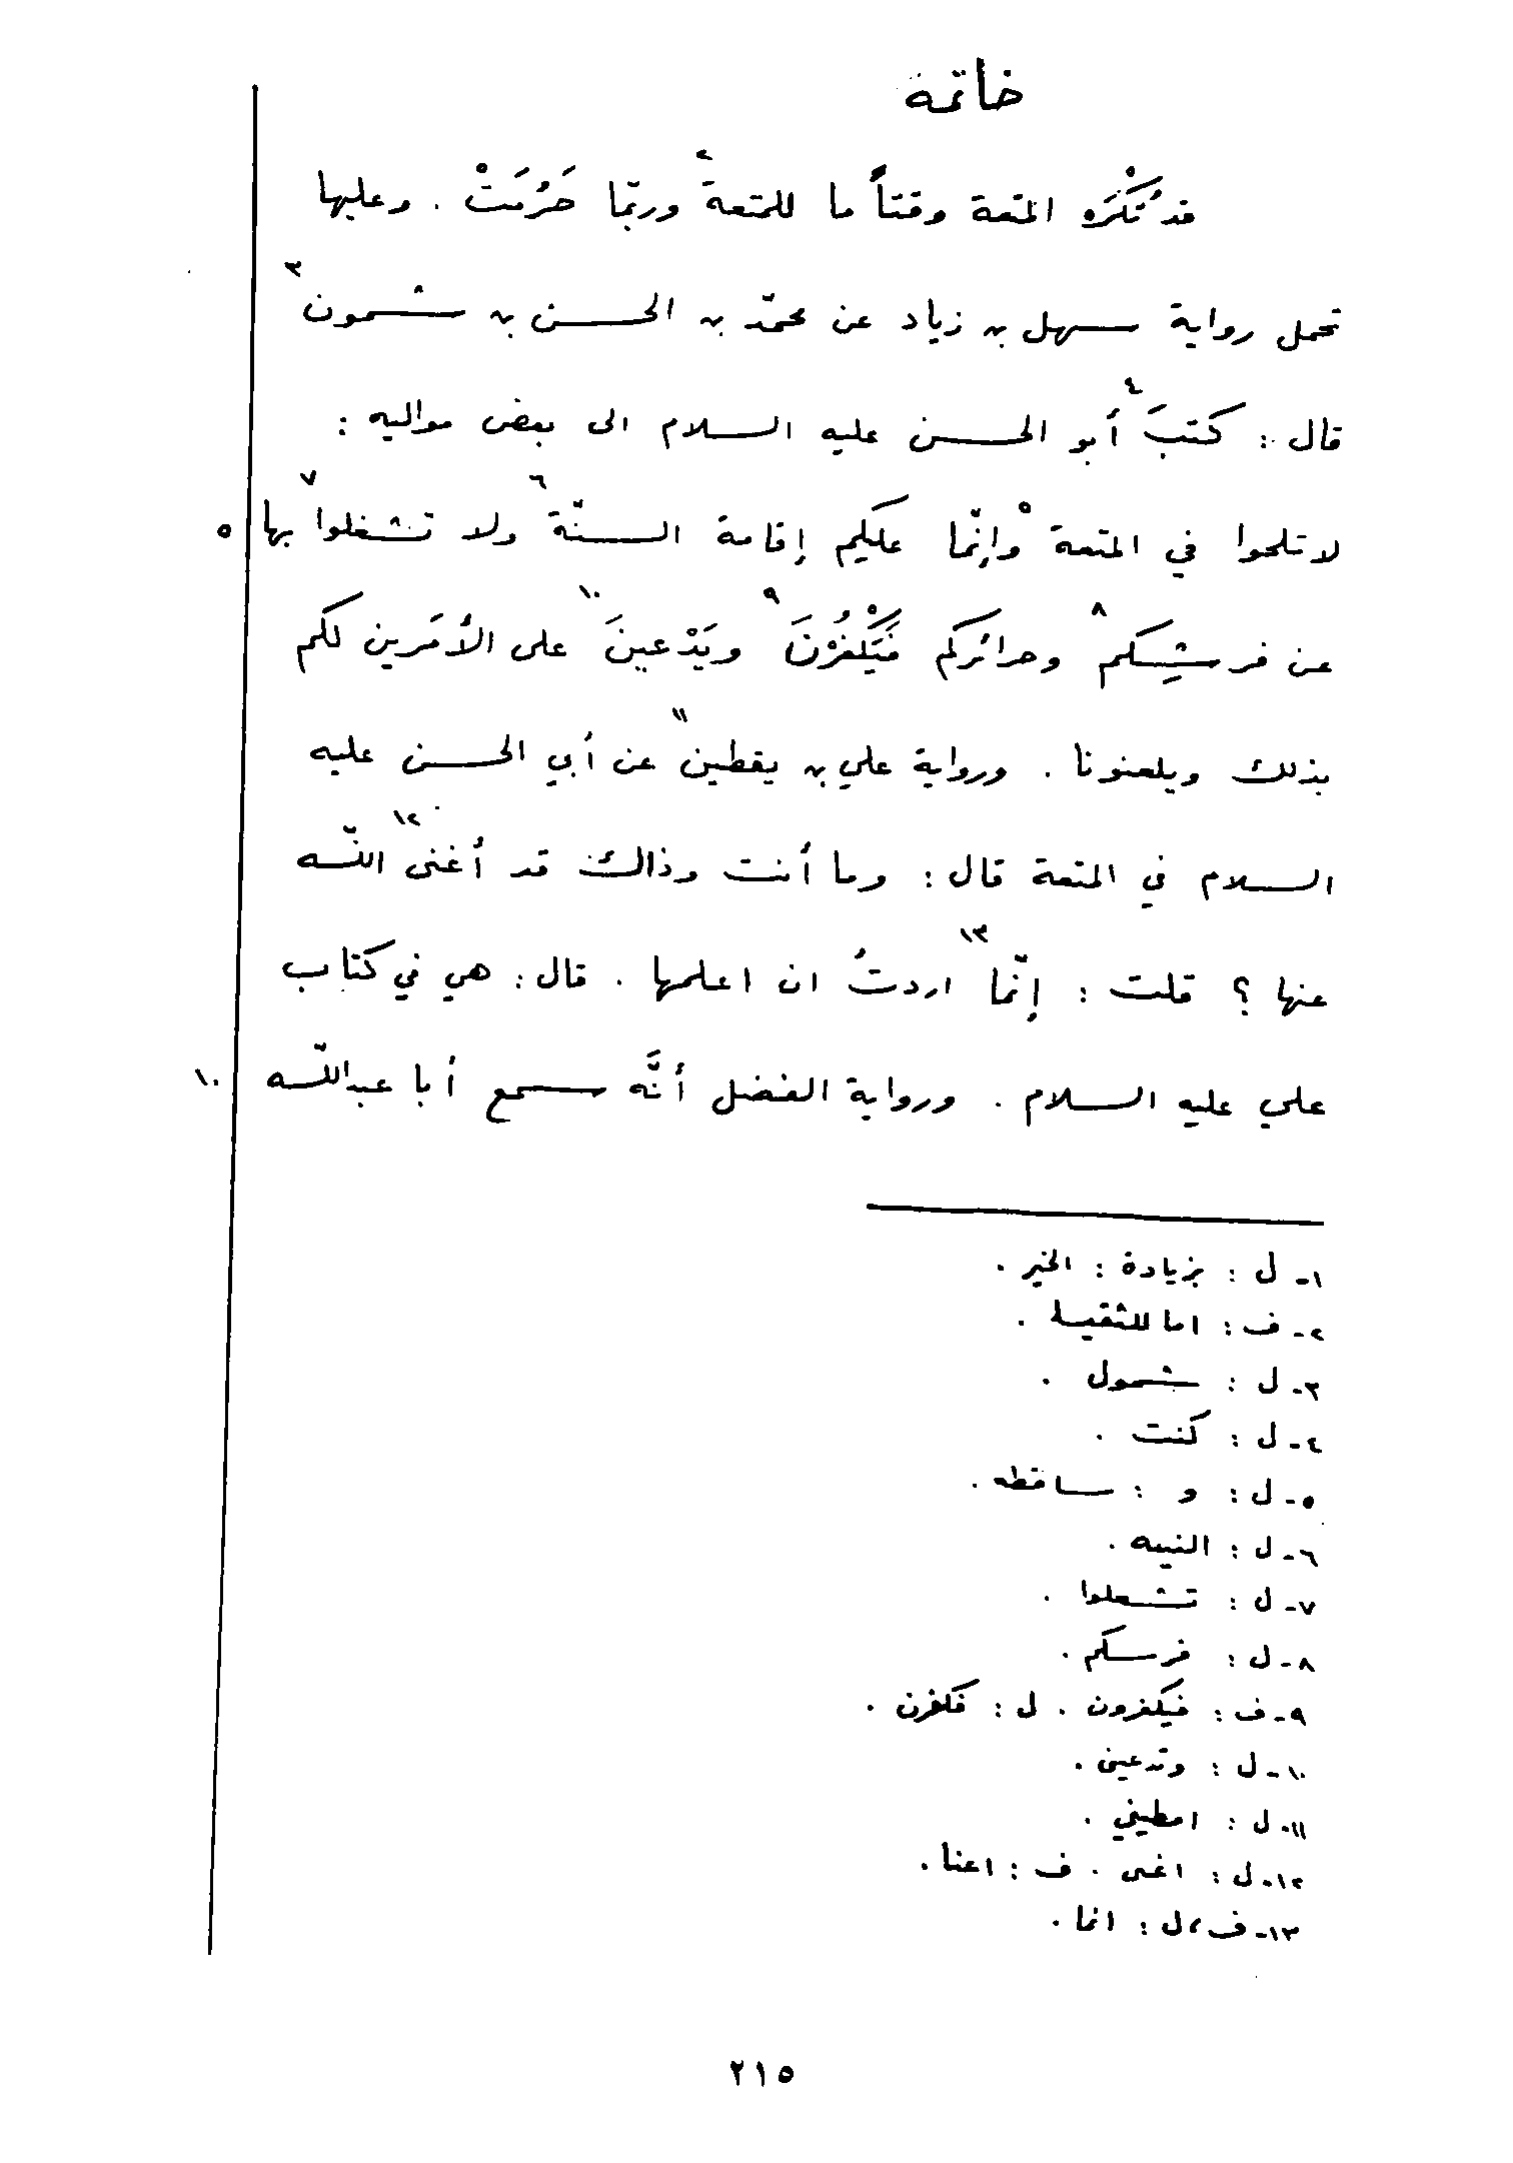 خاتمه
قد تُكْرَه المتعة وقتاً ما للمتعة٢ وربّما حَرُمَتْ . وعليها
تحمل رواية سهل بن زياد عن محمّد بن الحسن بن شمون٣
قال : كتبَ٤ أبو الحسن عليه السلام الى بعض مواليه :
لا تلحوا في المتعة ٥وإنّما عليكم إقامة السنّة٦ ولا تشغلوا٧ بها ٥
عن فرشِكم٨ وحرائركم فَيَكْفُرْنَ٩ ويَدْعينَ١٠ على الأمَرين لكم
بذلك ويلعنونا . ورواية علي بن يقطين١١ عن أبي الحسن عليه
السلام في المتعة قال : وما أنت وذاك قد أغنى١٢ اللّه
عنها ؟ قلت : إنّما١٣ اردتُ ان اعلمها . قال : هي في كتاب
علي عليه السلام . ورواية الفضل أنَّه سمع أبا عبداللّه ١٠
١- ل : بزيادة : الخير .
٢- ف : اما للثقيـة .
٣- ل : شمول .
٤- ل : كنت .
٥- ل : و : ساقطه .
٦- ل : النيه .
٧- ل : تشعلوا .
٨- ل : فرسكم .
٩- ف : فيكفرون . ل : فكفرن .
١٠- ل : وتدعين .
١١- ل : امطيني .
١٢- ل : اغى . ف : اعنا .
١٣- ف ، ل : انما .
٢١٥